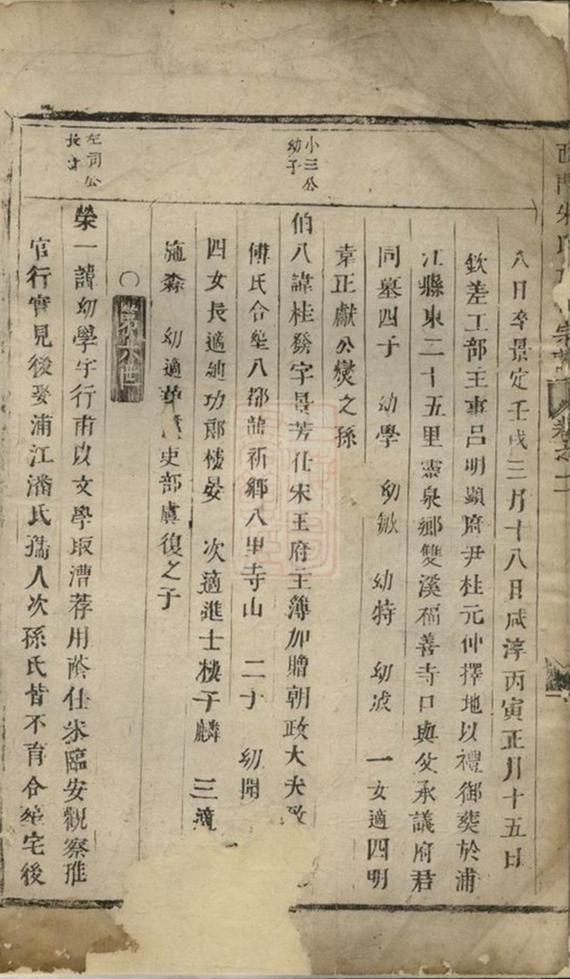 八日卒景定壬戌三月十八日咸淳丙寅正月十五日
欽差工部主事呂明顯府尹杜元仲擇地以禮御葬於浦
江縣東二十五里靈泉鄉雙溪福善寺口與父承議府君
同墓四子 幼學 幼敏 幼特 幼波 一女適四明
章正獻公燮之孫
小三公
幼子
伯八諱桂發字景芳仕宋王府主簿加贈朝政大夫
傅氏合塟八都龍祈鄉八里寺山 二子 幼開
四女長適廸功郎樓晏 次適進士桃子麟 三適
施森 幼適 吏部虞復之子
〇 第六世
左司公
長子
榮一諱幼學字行甫以文學取漕荐用蔭仕宋臨安觀察推
官行實見後娶浦江潘氏孺人次孫氏皆不育合塟宅後